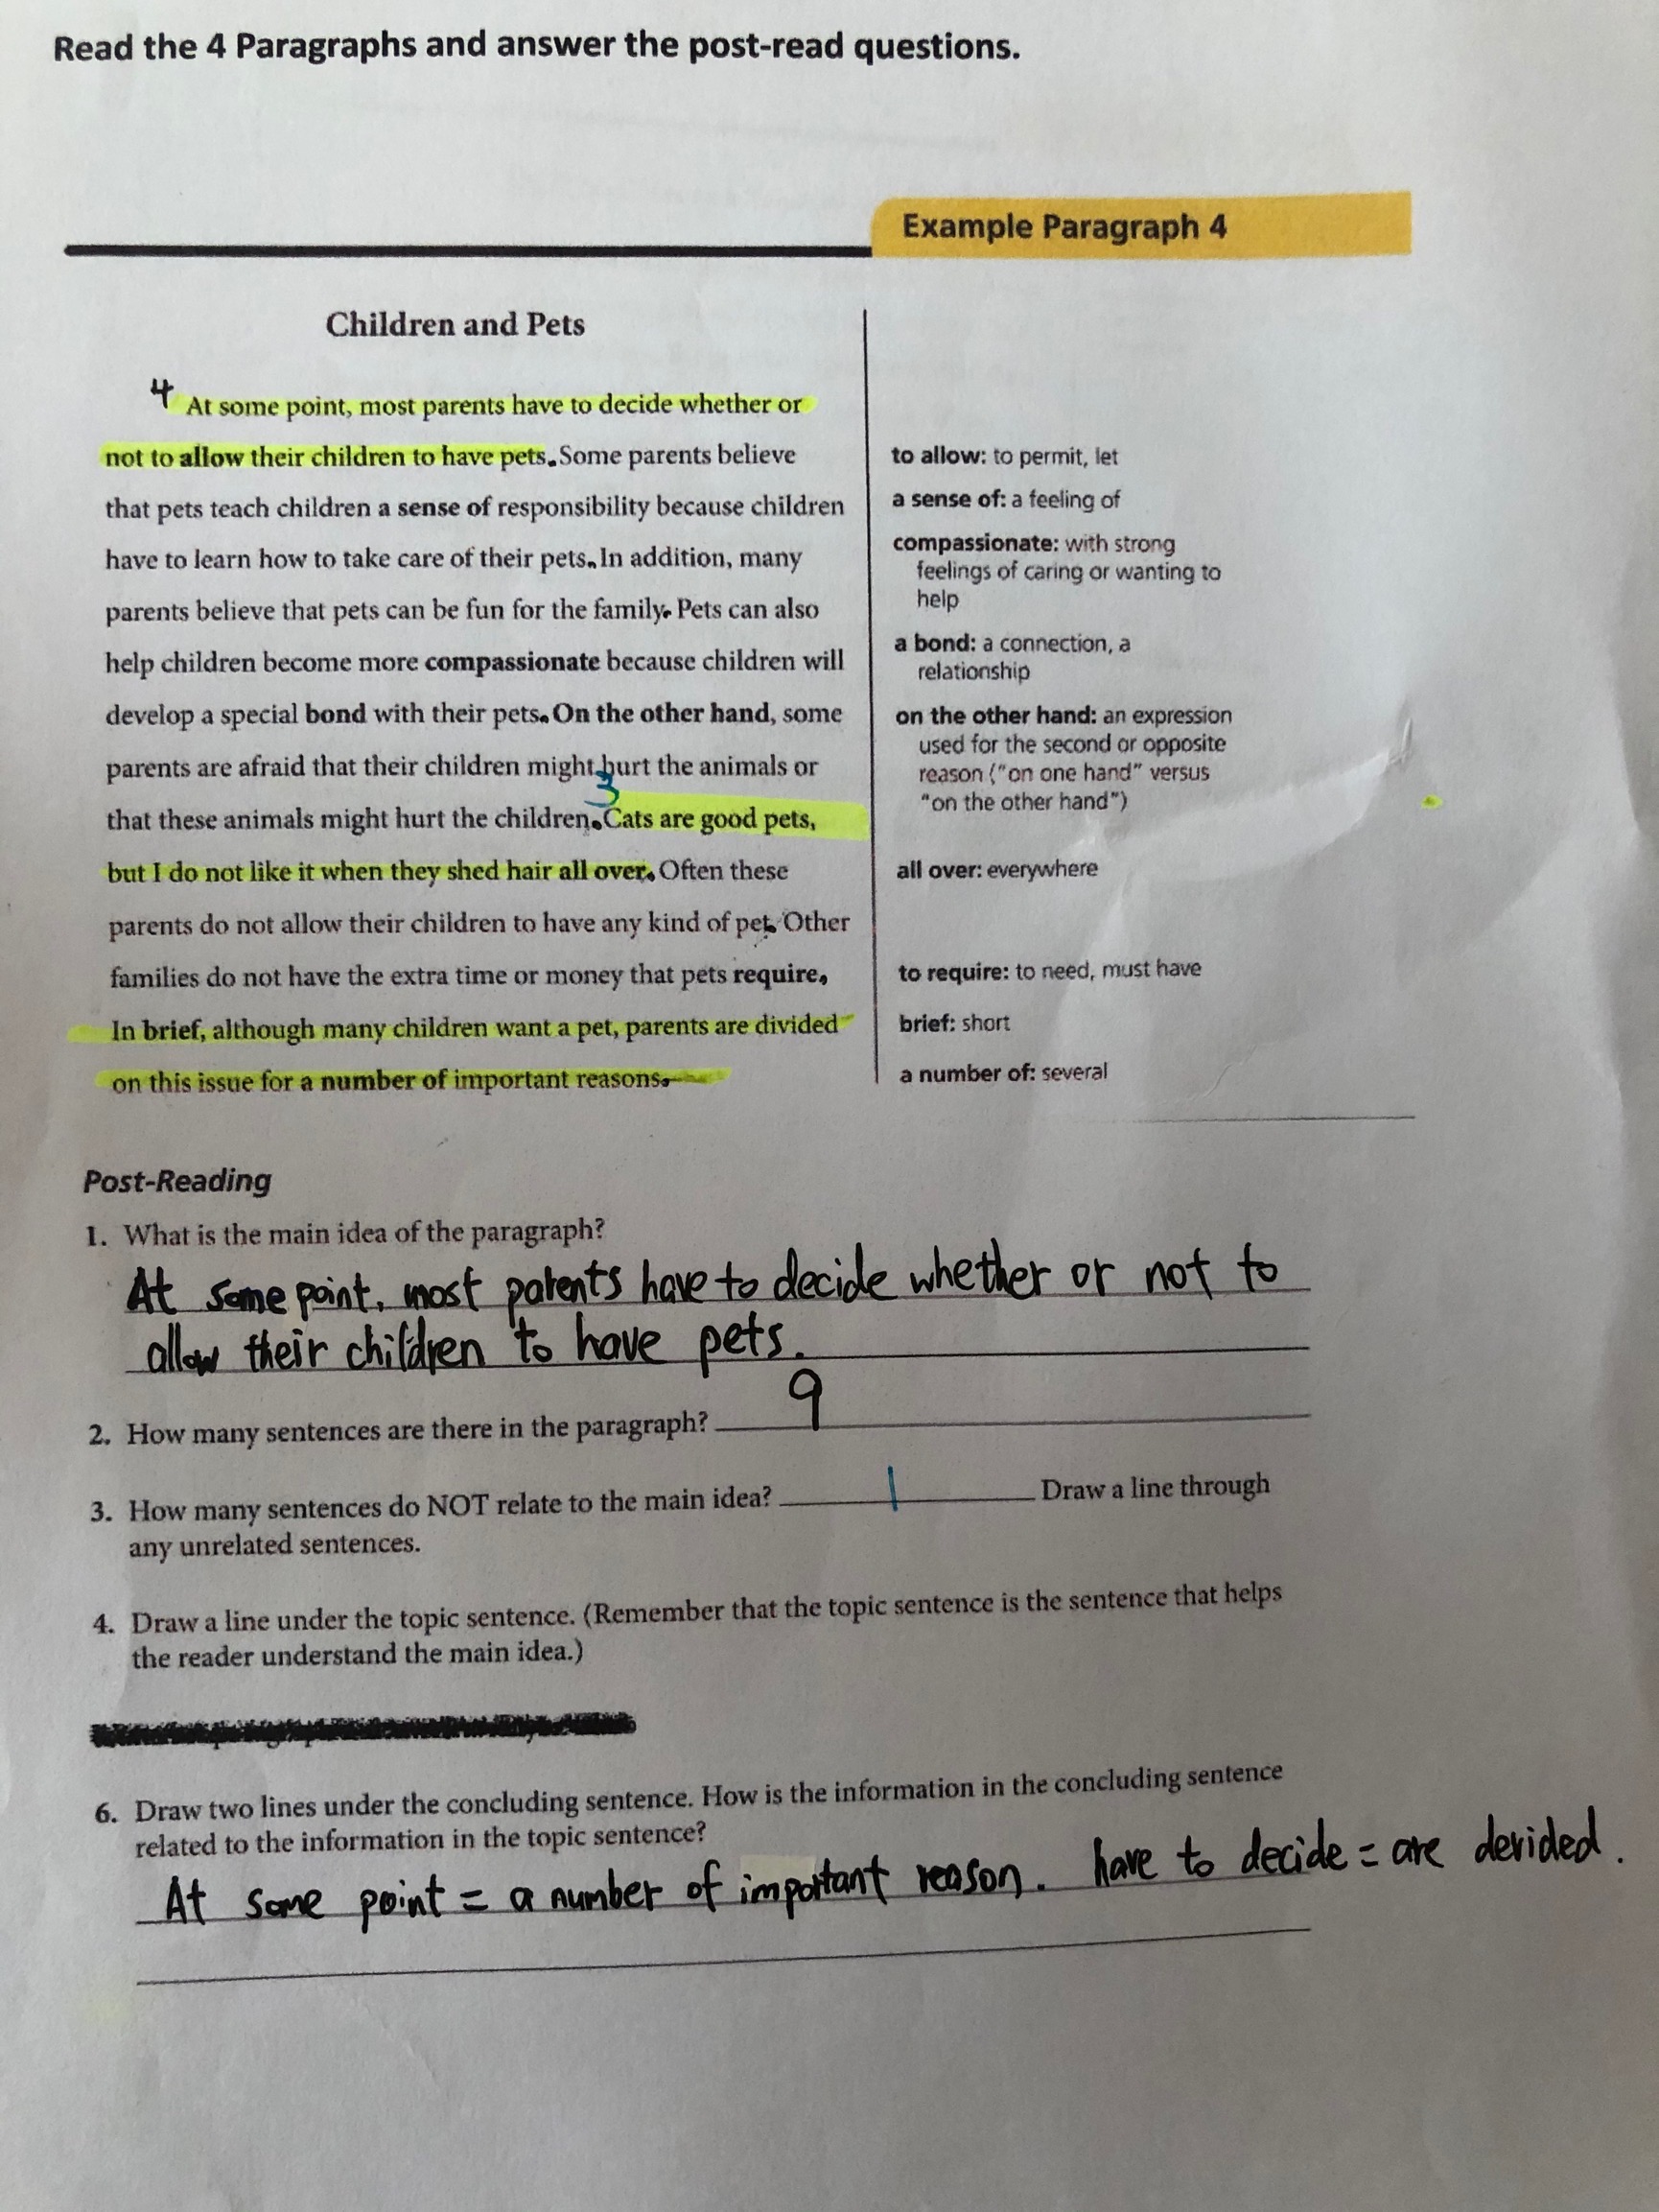 Read the 4 Paragraphs and answer the post-read questions.
Example Paragraph 4
Children and Pets
4 At some point, most parents have to decide whether or
not to allow their children to have pets. Some parents believe
that pets teach children a sense of responsibility because children
have to learn how to take care of their pets. In addition, many
parents believe that pets can be fun for the family. Pets can also
help children become more compassionate because children will
develop a special bond with their pets. On the other hand, some
parents are afraid that their children might hurt the animals or
3
that these animals might hurt the children. Cats are good pets,
but I do not like it when they shed hair all over. Often these
parents do not allow their children to have any kind of pet. Other
families do not have the extra time or money that pets require.
In brief, although many children want a pet, parents are divided
on this issue for a number of important reasons.
to allow: to permit, let
a sense of: a feeling of
compassionate: with strong
feelings of caring or wanting to
help
a bond: a connection, a
relationship
on the other hand: an expression
used for the second or opposite
reason ("on one hand" versus
"on the other hand")
all over: everywhere
to require: to need, must have
brief: short
a number of: several
Post-Reading
1. What is the main idea of the paragraph?
At some point, most parents have to decide whether or not to
allow their children to have pets.
2. How many sentences are there in the paragraph? 9
3. How many sentences do NOT relate to the main idea? 1 Draw a line through
any unrelated sentences.
4. Draw a line under the topic sentence. (Remember that the topic sentence is the sentence that helps
the reader understand the main idea.)
6. Draw two lines under the concluding sentence. How is the information in the concluding sentence
related to the information in the topic sentence?
At some point = a number of important reason. have to decide = are derided.